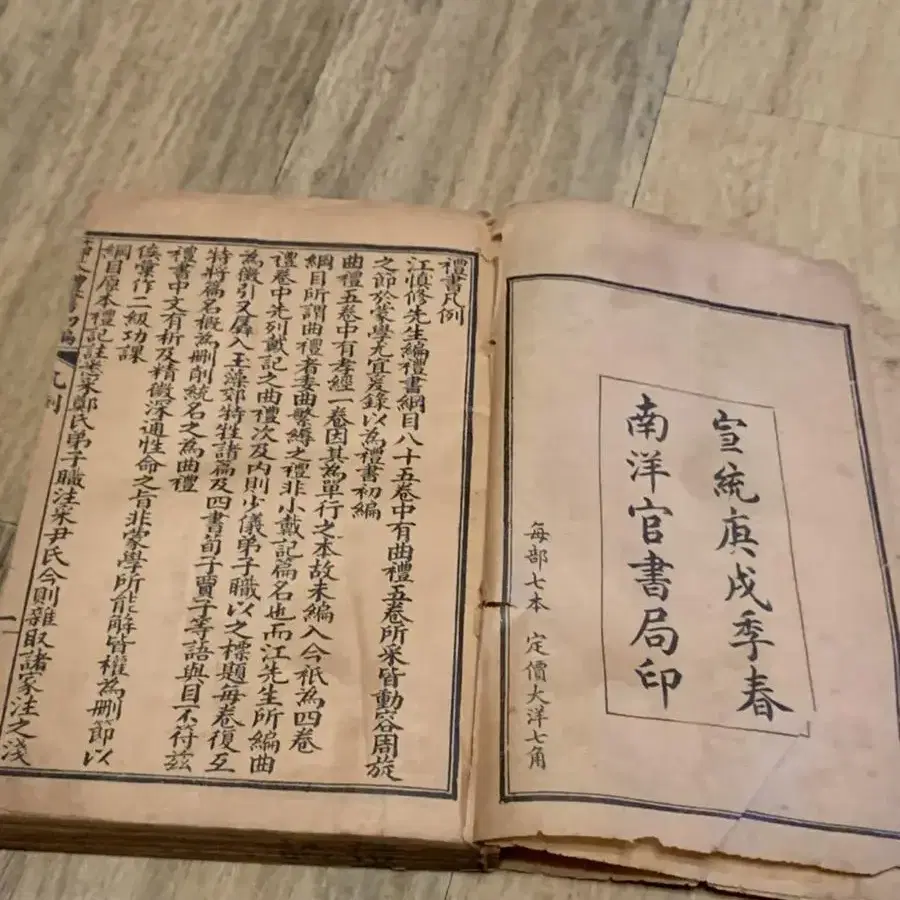 宣統庚戌季春
南洋官書局印
每部七本 定價大洋七角
禮書凡例
江慎修先生編禮書綱目八十五卷中有曲禮五卷所采皆動容周旋
之節於蒙學尤宜爰錄以為禮書初編
曲禮五卷中有孝經一卷因其為單行之本故未編入今祇為四卷
綱目所謂曲禮者委曲繁縟之禮非小戴記篇名也而江先生所編曲
禮卷中先列戴記之曲禮次及內則少儀弟子職以之標題每卷復互
為徵引又孱入玉藻郊特牲諸篇及四書荀子賈子等語與目不符茲
特將篇名概為刪削統名之為曲禮
禮書中文有析及精微深通性命之旨非蒙學所能解皆權為刪節以
俟彙作二級功課
綱目原本禮記註悉采鄭氏弟子職注采尹氏今則雜取諸家注之淺
凡例